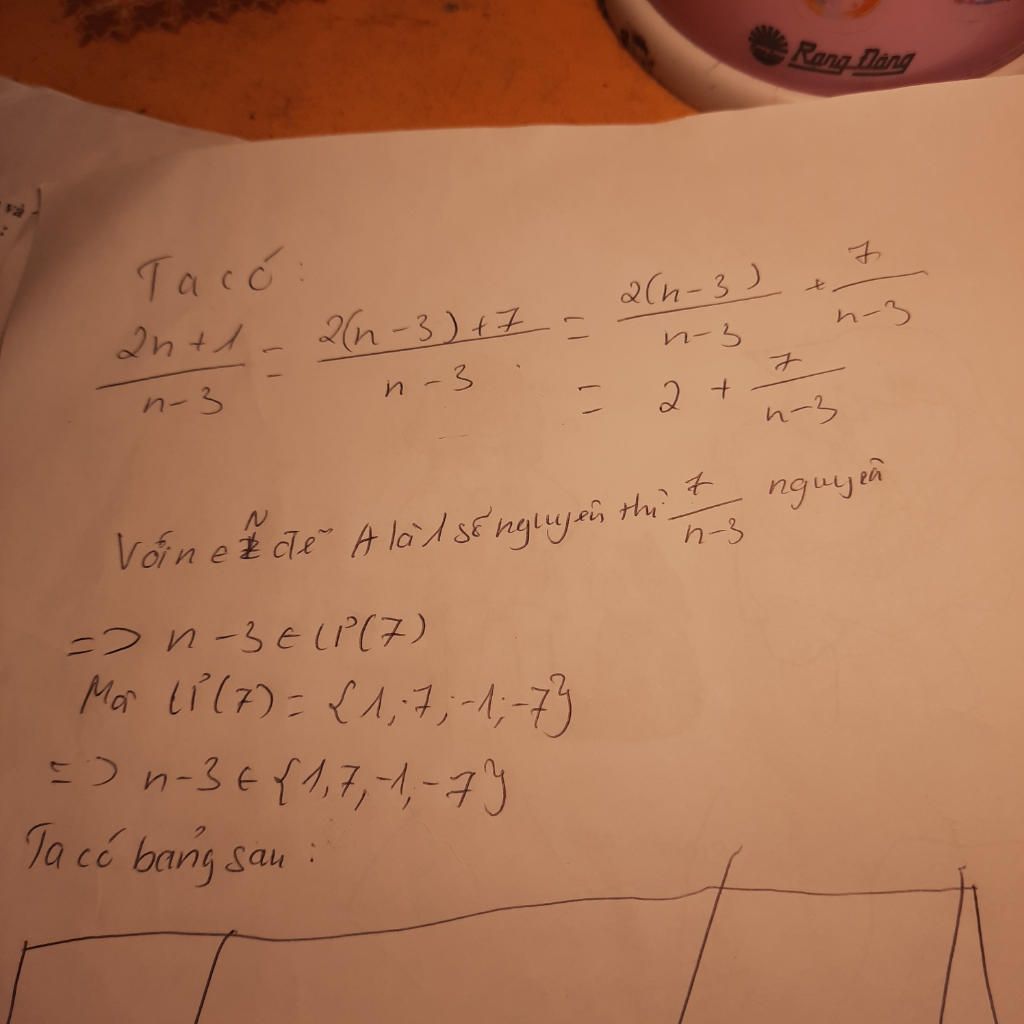 Rạng Đông
và
Ta có:
\frac{2n+1}{n-3} = \frac{2(n-3)+7}{n-3} = \frac{2(n-3)}{n-3} + \frac{7}{n-3}
= 2 + \frac{7}{n-3}
Với n є N để A là 1 số nguyên thì \frac{7}{n-3} nguyên
=> n-3 є Ư(7)
Mà Ư(7) = {1; 7; -1; -7}
=> n-3 є {1, 7, -1, -7}
Ta có bảng sau: